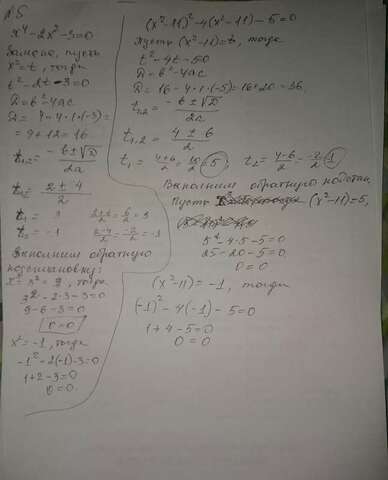 №5
x⁴-2x²-3=0
Замена, пусть
x²=t, тогда
t²-2t-3=0
D=b²-4ac
D=4-4·1·(-3)=
=4+12=16
t₁,₂= -b±√D / 2a
t₁,₂= 2±4 / 2
t₁= 3 2+4/2=6/2=3
t₂=-1 2-4/2=-2/2=-1
Выполним обратную
подстановку:
тогда
3²-2·3-3=0
9-6-3=0
0=0
x²=-1, тогда
-1²-2(-1)-3=0
1+2-3=0
0=0.
(x²-11)²-4(x²-11)-5=0
Пусть (x²-11)=t, тогда
t²-4t-5=0
D=b²-4ac
D=16-4·1·(-5)=16+20=36
t₁,₂= -b±√D / 2a
t₁,₂= 4±6 / 2
t₁= 4+6/2=10/2=5; t₂= 4-6/2=-2/2=-1
Выполним обратную подстан.
Пусть (x²-11)=5,
5²-4·5-5=0
25-20-5=0
0=0
(x²-11)=-1, тогда
(-1)²-4(-1)-5=0
1+4-5=0
0=0